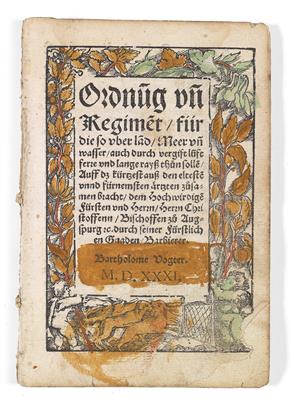 Ordnũg vñ
Regimẽt / für
die so vber lãd / Meer vñ
wasser / auch durch vergift lüft
ferre vnd lange rayß thůn sollẽ /
Auff dz kürtzest auß den eltestẽ
vnnd fürnemsten ärtzten zůsa-
men bracht / dem Hochwirdigẽ
Fürsten vnd Herrn / Herrn Cri-
stoffenn / Bischoffen zů Aug-
spurg ꝛc. durch seiner Fürstlich
en Gnaden Barbierer.
Bartholome Vogter.
M. D. XXXI.